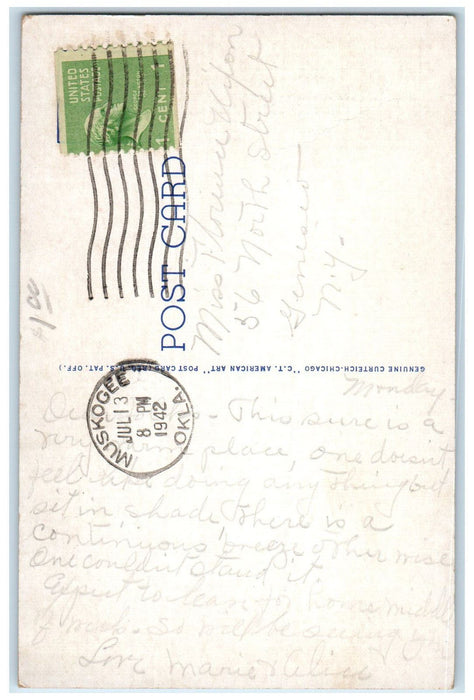 UNITED
STATES
POSTAGE
1 CENT 1
POST CARD
Miss Florence Nixon
56 North Street
Geneseo
N.Y.
$1.00
GENUINE CURTEICH-CHICAGO "C.T. AMERICAN ART" POST CARD (REG. U.S. PAT. OFF.)
MUSKOGEE
JUL 13
8 PM
1942
OKLA.
Monday-
This sure is a
very warm place, one doesn't
feel like doing any thing but
sit in shade. There is a
continuous breeze other wise
one couldn't stand it.
Expect to leave for home middle
of week. So will be seeing you
Love Marie & Alice